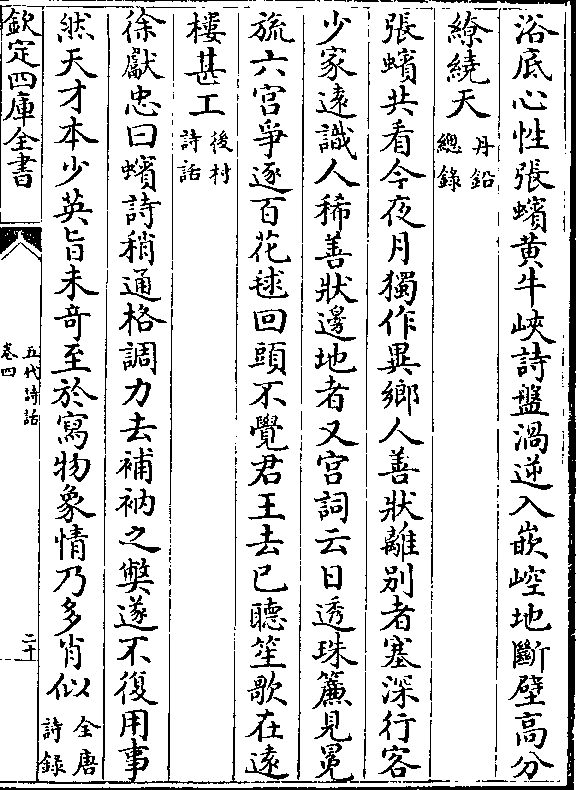 浴底心性張蠙黄牛峽詩盤渦逆入嵌崆地斷壁高分
繚繞天丹鉛總錄
張蠙共看今夜月獨作異鄉人善狀離别者塞深行客
少家遠識人稀善狀邊地者又宫詞云日透珠簾見冕
旒六宫爭逐百花毬回頭不覺君王去已聽笙歌在遠
樓甚工後村詩話
徐獻忠曰蠙詩稍通格調力去補衲之獘遂不復用事
然天才本少英旨未奇至於寫物象情乃多肖似全唐詩錄
欽定四庫全書
五代詩話
卷四
二十